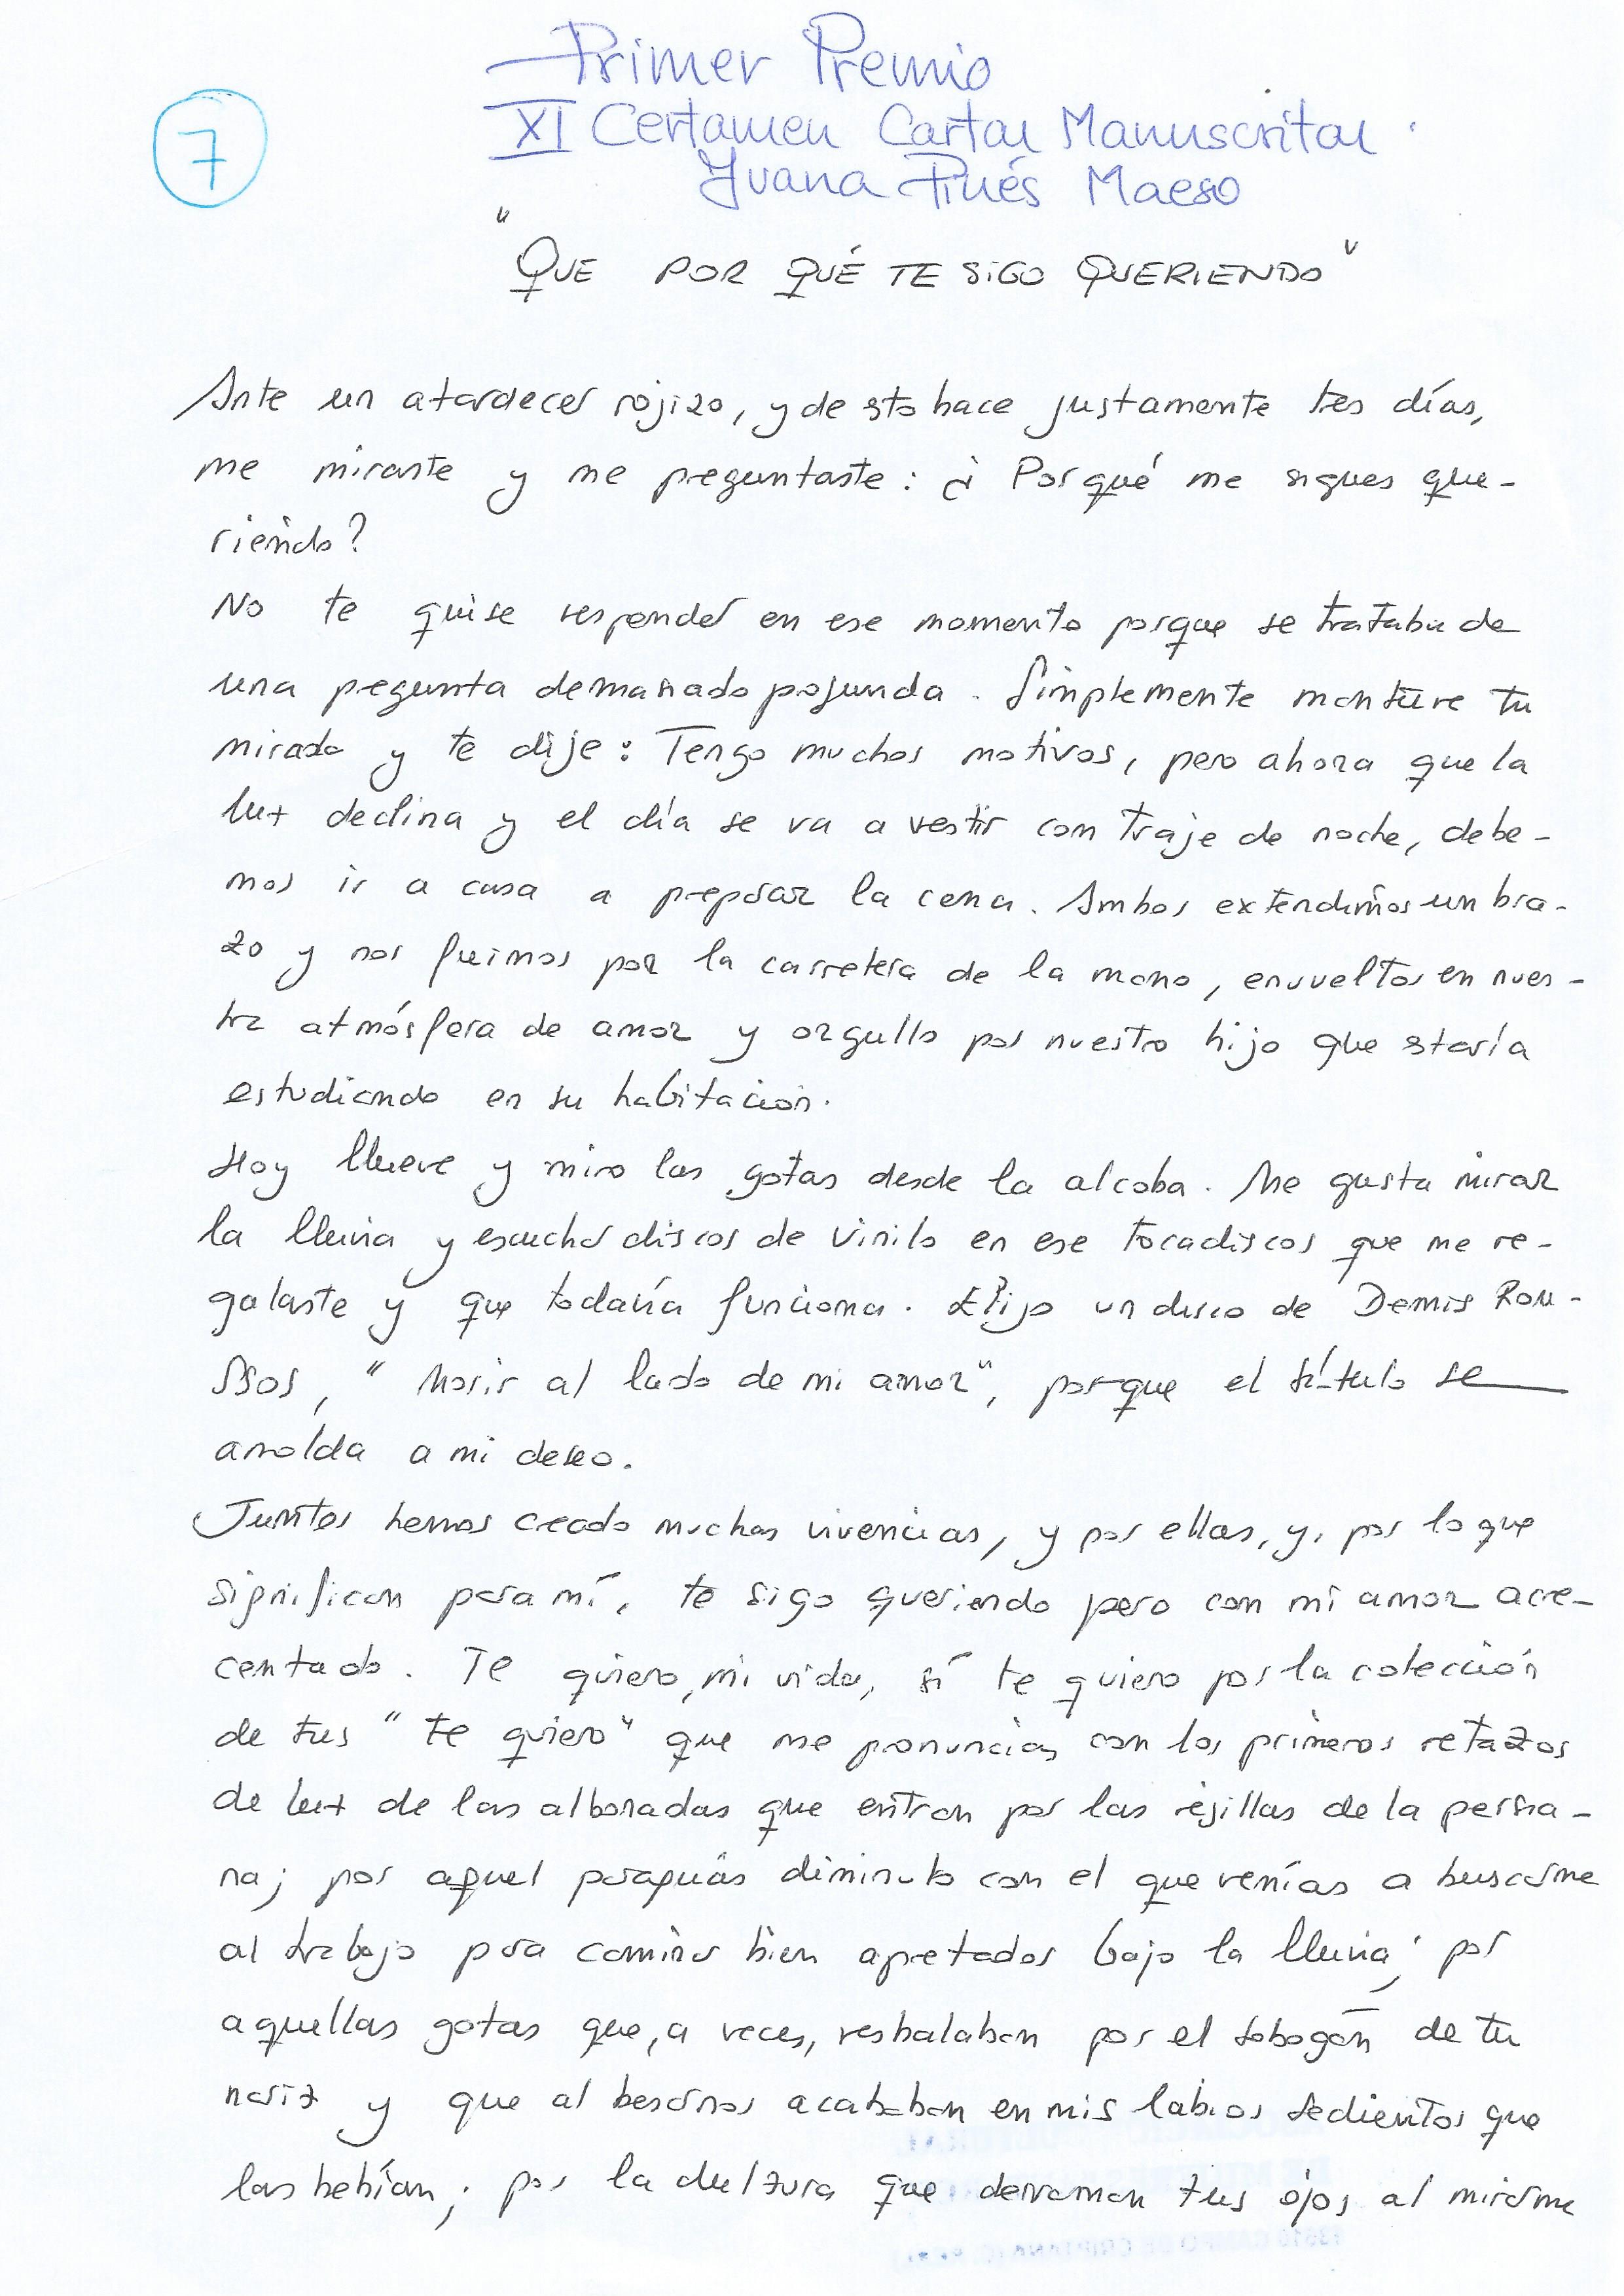 Primer Premio
7
XI Certamen Cartas Manuscritas
Juana Pinés Maeso
"QUE POR QUÉ TE SIGO QUERIENDO"
Ante un atardecer rojizo, y de esto hace justamente tres días,
me miraste y me preguntaste: ¿Por qué me sigues que-
riendo?
No te quise responder en ese momento porque se trataba de
una pregunta demasiado profunda. Simplemente mantuve tu
mirada y te dije: Tengo muchos motivos, pero ahora que la
luz declina y el día se va a vestir con traje de noche, debe-
mos ir a casa a preparar la cena. Ambos extendimos un bra-
zo y nos fuimos por la carretera de la mano, envueltos en nues-
tra atmósfera de amor y orgullo por nuestro hijo que estaría
estudiando en su habitación.
Hoy llueve y miro las gotas desde la alcoba. Me gusta mirar
la lluvia y escuchar discos de vinilo en ese tocadiscos que me re-
galaste y que todavía funciona. Elijo un disco de Demis Rou-
ssos, "Morir al lado de mi amor", porque el título se
amolda a mi deseo.
Juntos hemos creado muchas vivencias, y por ellas, y, por lo que
significan para mí, te sigo queriendo pero con mi amor acre-
centado. Te quiero, mi vida, sí te quiero por la colección
de tus "te quiero" que me pronuncias con los primeros retazos
de luz de las alboradas que entran por las rejillas de la persia-
na; por aquel paraguas diminuto con el que venías a buscarme
al trabajo para caminar bien apretados bajo la lluvia; por
aquellas gotas que, a veces, resbalaban por el tobogán de tu
nariz y que al besarnos acababan en mis labios sedientos que
las bebían; por la dulzura que derraman tus ojos al mirarme